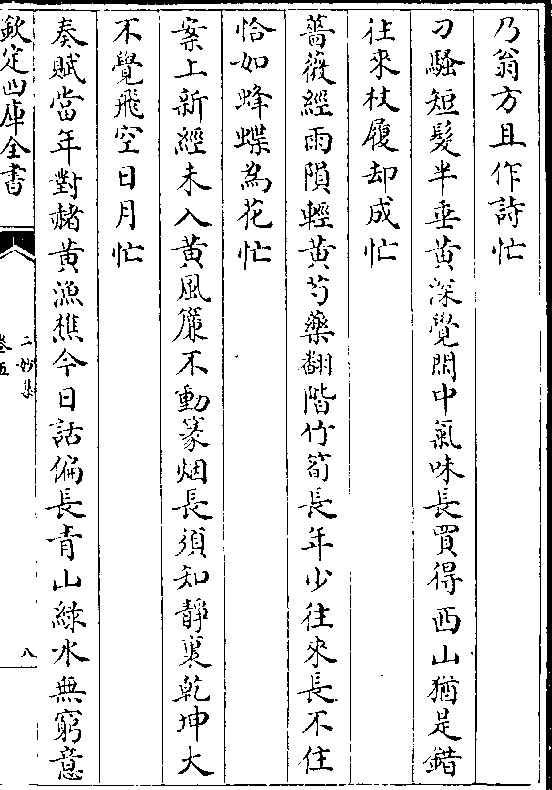 乃翁方且作詩忙
刁騷短髮半垂黄深覺閒中氣味長買得西山猶是錯
往來杖屨却成忙
薔薇經雨隕輕黄芍藥翻階竹筍長年少往來長不住
恰如蜂蝶為花忙
案上新經未入黄風簾不動篆烟長須知靜裏乾坤大
不覺飛空日月忙
奏賦當年對赭黄漁樵今日話偏長青山緑水無窮意
欽定四庫全書
二妙集
卷五
八